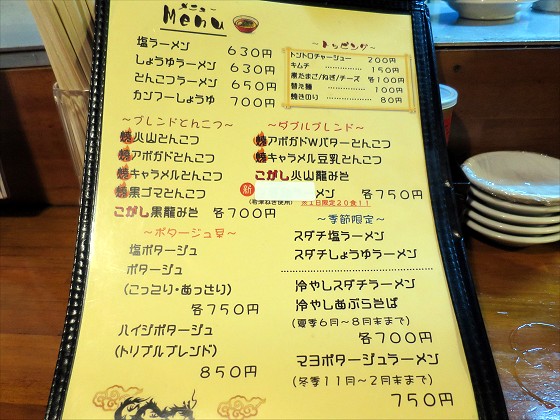 メニュー
Menu
塩ラーメン 630円
しょうゆラーメン 630円
とんこつラーメン 650円
カンフーしょうゆ 700円
～トッピング～
トントロチャーシュー 200円
キムチ ………… 150円
煮たまご/ねぎ/チーズ 各100円
替え麺 ………… 100円
焼きのり ………… 80円
～ブレンドとんこつ～
焼火山とんこつ
焼アボガドとんこつ
焼キャラメルとんこつ
焼黒ゴマとんこつ
こがし黒龍みそ 各700円
～ダブルブレンド～
焼アボガドWバターとんこつ
焼キャラメル豆乳とんこつ
こがし火山龍みそ
新 メン 各750円
ねぎ使用) ※1日限定20食!!
～ポタージュ系～
塩ポタージュ
ポタージュ
(こってり・あっさり)
各750円
ハイジポタージュ
(トリプルブレンド)
850円
～季節限定～
スダチ塩ラーメン
スダチしょうゆラーメン
冷やしスダチラーメン
冷やしあぶらそば
(夏季6月～8月末まで)
各700円
マヨポタージュラーメン
(冬季11月～2月末まで)
750円